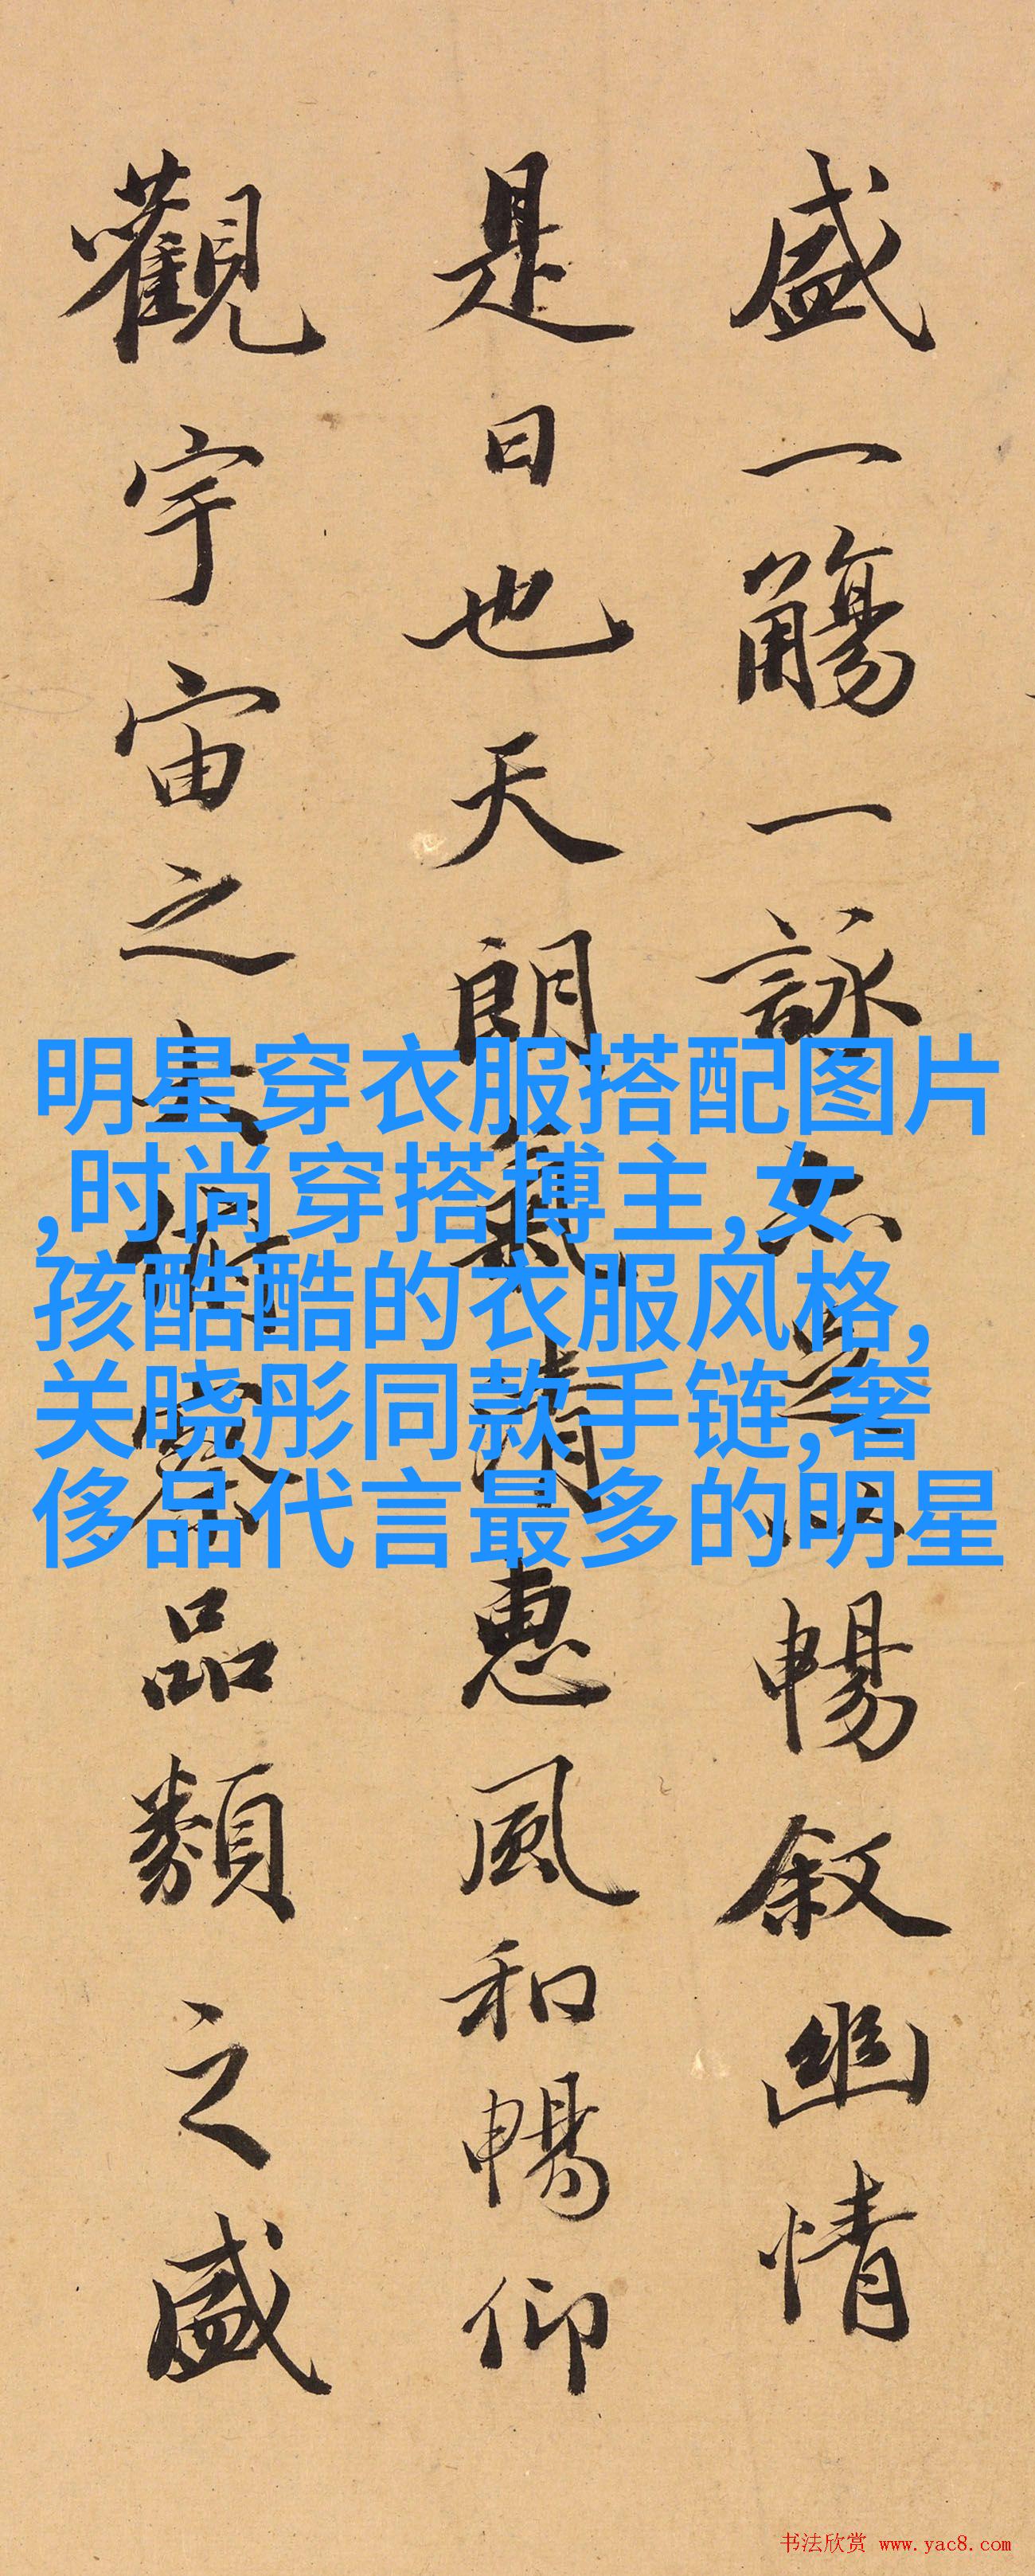 盛一觴一詠亦足以暢叙幽情
是日也天朗氣清惠風和暢仰
觀宇宙之大俯察品類之盛
明星穿衣服搭配图片
,时尚穿搭博主,女
孩酷酷的衣服风格,
关晓彤同款手链,奢
侈品代言最多的明星
书法欣赏 www.yac8.com